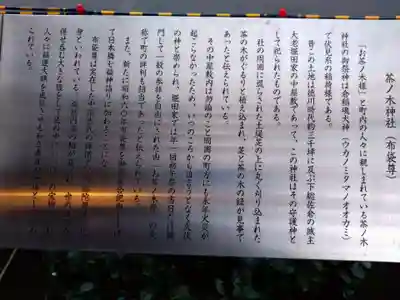 茶ノ木神社（布袋尊）
「お茶ノ木様」と町内の人々に親しまれている茶ノ木
神社の御祭神は倉稲魂大神（ウカノミタマノオオカミ）
で伏見系の稲荷様である。
昔この土地は徳川時代約三千坪に及ぶ下総佐倉の城主
大老堀田家の中屋敷であって、この神社はその守護神と
して祀られたものである。
社の周囲に巡らされた土堤芝の上に丸く刈り込まれた
茶の木がぐるりと植え込まれ、芝と茶の木の緑が見事で
あったと伝えられている。
その中屋敷内は勿論のこと周囲の町方にも永年火災が
起こらなかったため、いつのころから誰言うとなく火伏
の神と崇められ、堀田家では年一回初午祭の当日だけ開
門して一般の参拝を自由にされた由「お茶ノ木様」の
称で町の評判も相当であったと伝えられている。
また、新たに昭和六十年
て日本橋七福神詣りに加わることに
布袋尊は実在した中国唐代の禅僧で
身といわれている。
併せ呑む大きな腹をして
人々に福運大
られている。